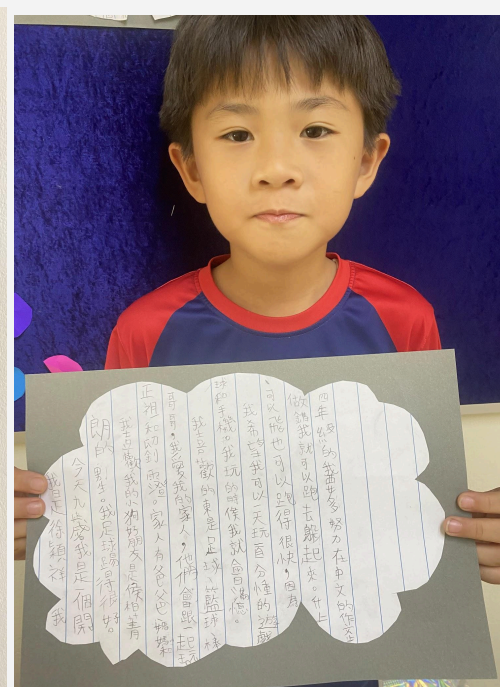 我是徐穎祥 我
今天九歲。我是一個開
朗的男生。我足球踢得很好。
我喜歡我的狗。好朋友是侯柏菁
正祖和 家人有爸爸也媽媽和
哥哥。我愛我的家人,他們會跟一起玩
我喜歡的東是足球、籃球
球和手機。我玩的時候我就會滿
我希望我可以一天玩百分鐘的遊戲
,可以飛也可以跑得很快,因為
做錯我就可以跑去躲起來。升上
四年級的我 多努力在中文的作